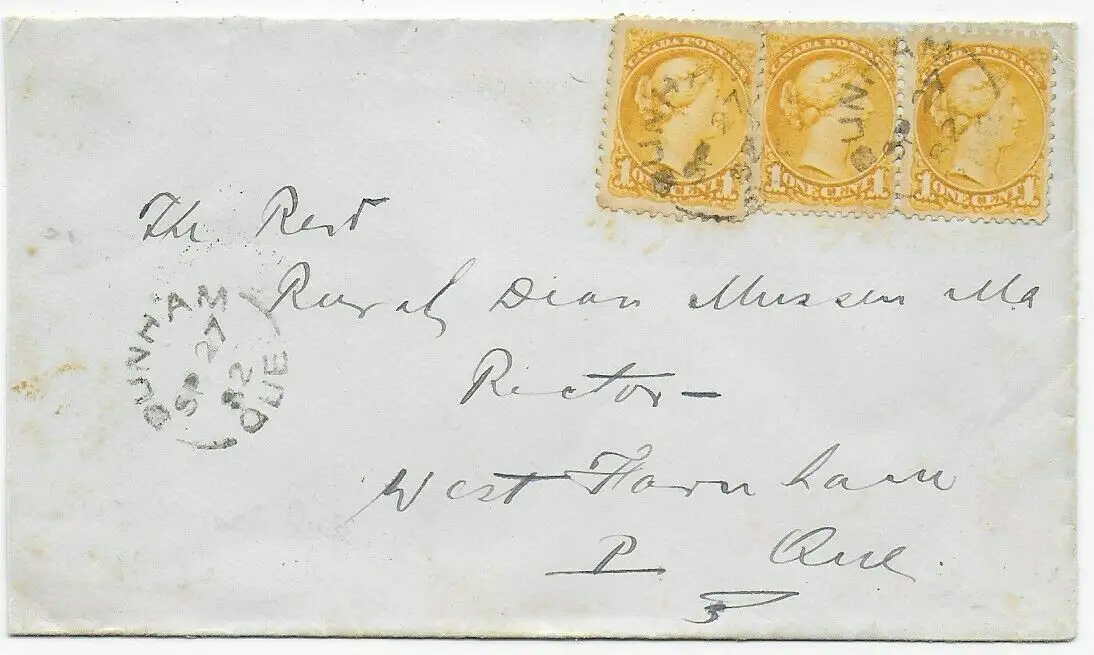 CANADA POSTAGE CANADA POSTAGE CANADA POSTAGE
DUNHAM DUNHAM
SP 27
82
1 ONE CENT 1 1 ONE CENT 1 1 ONE CENT 1
The Revd
Rural Dean Mussen Ma
Rector —
West Farnham
P Que
DUNHAM
SP 27
82
QUE